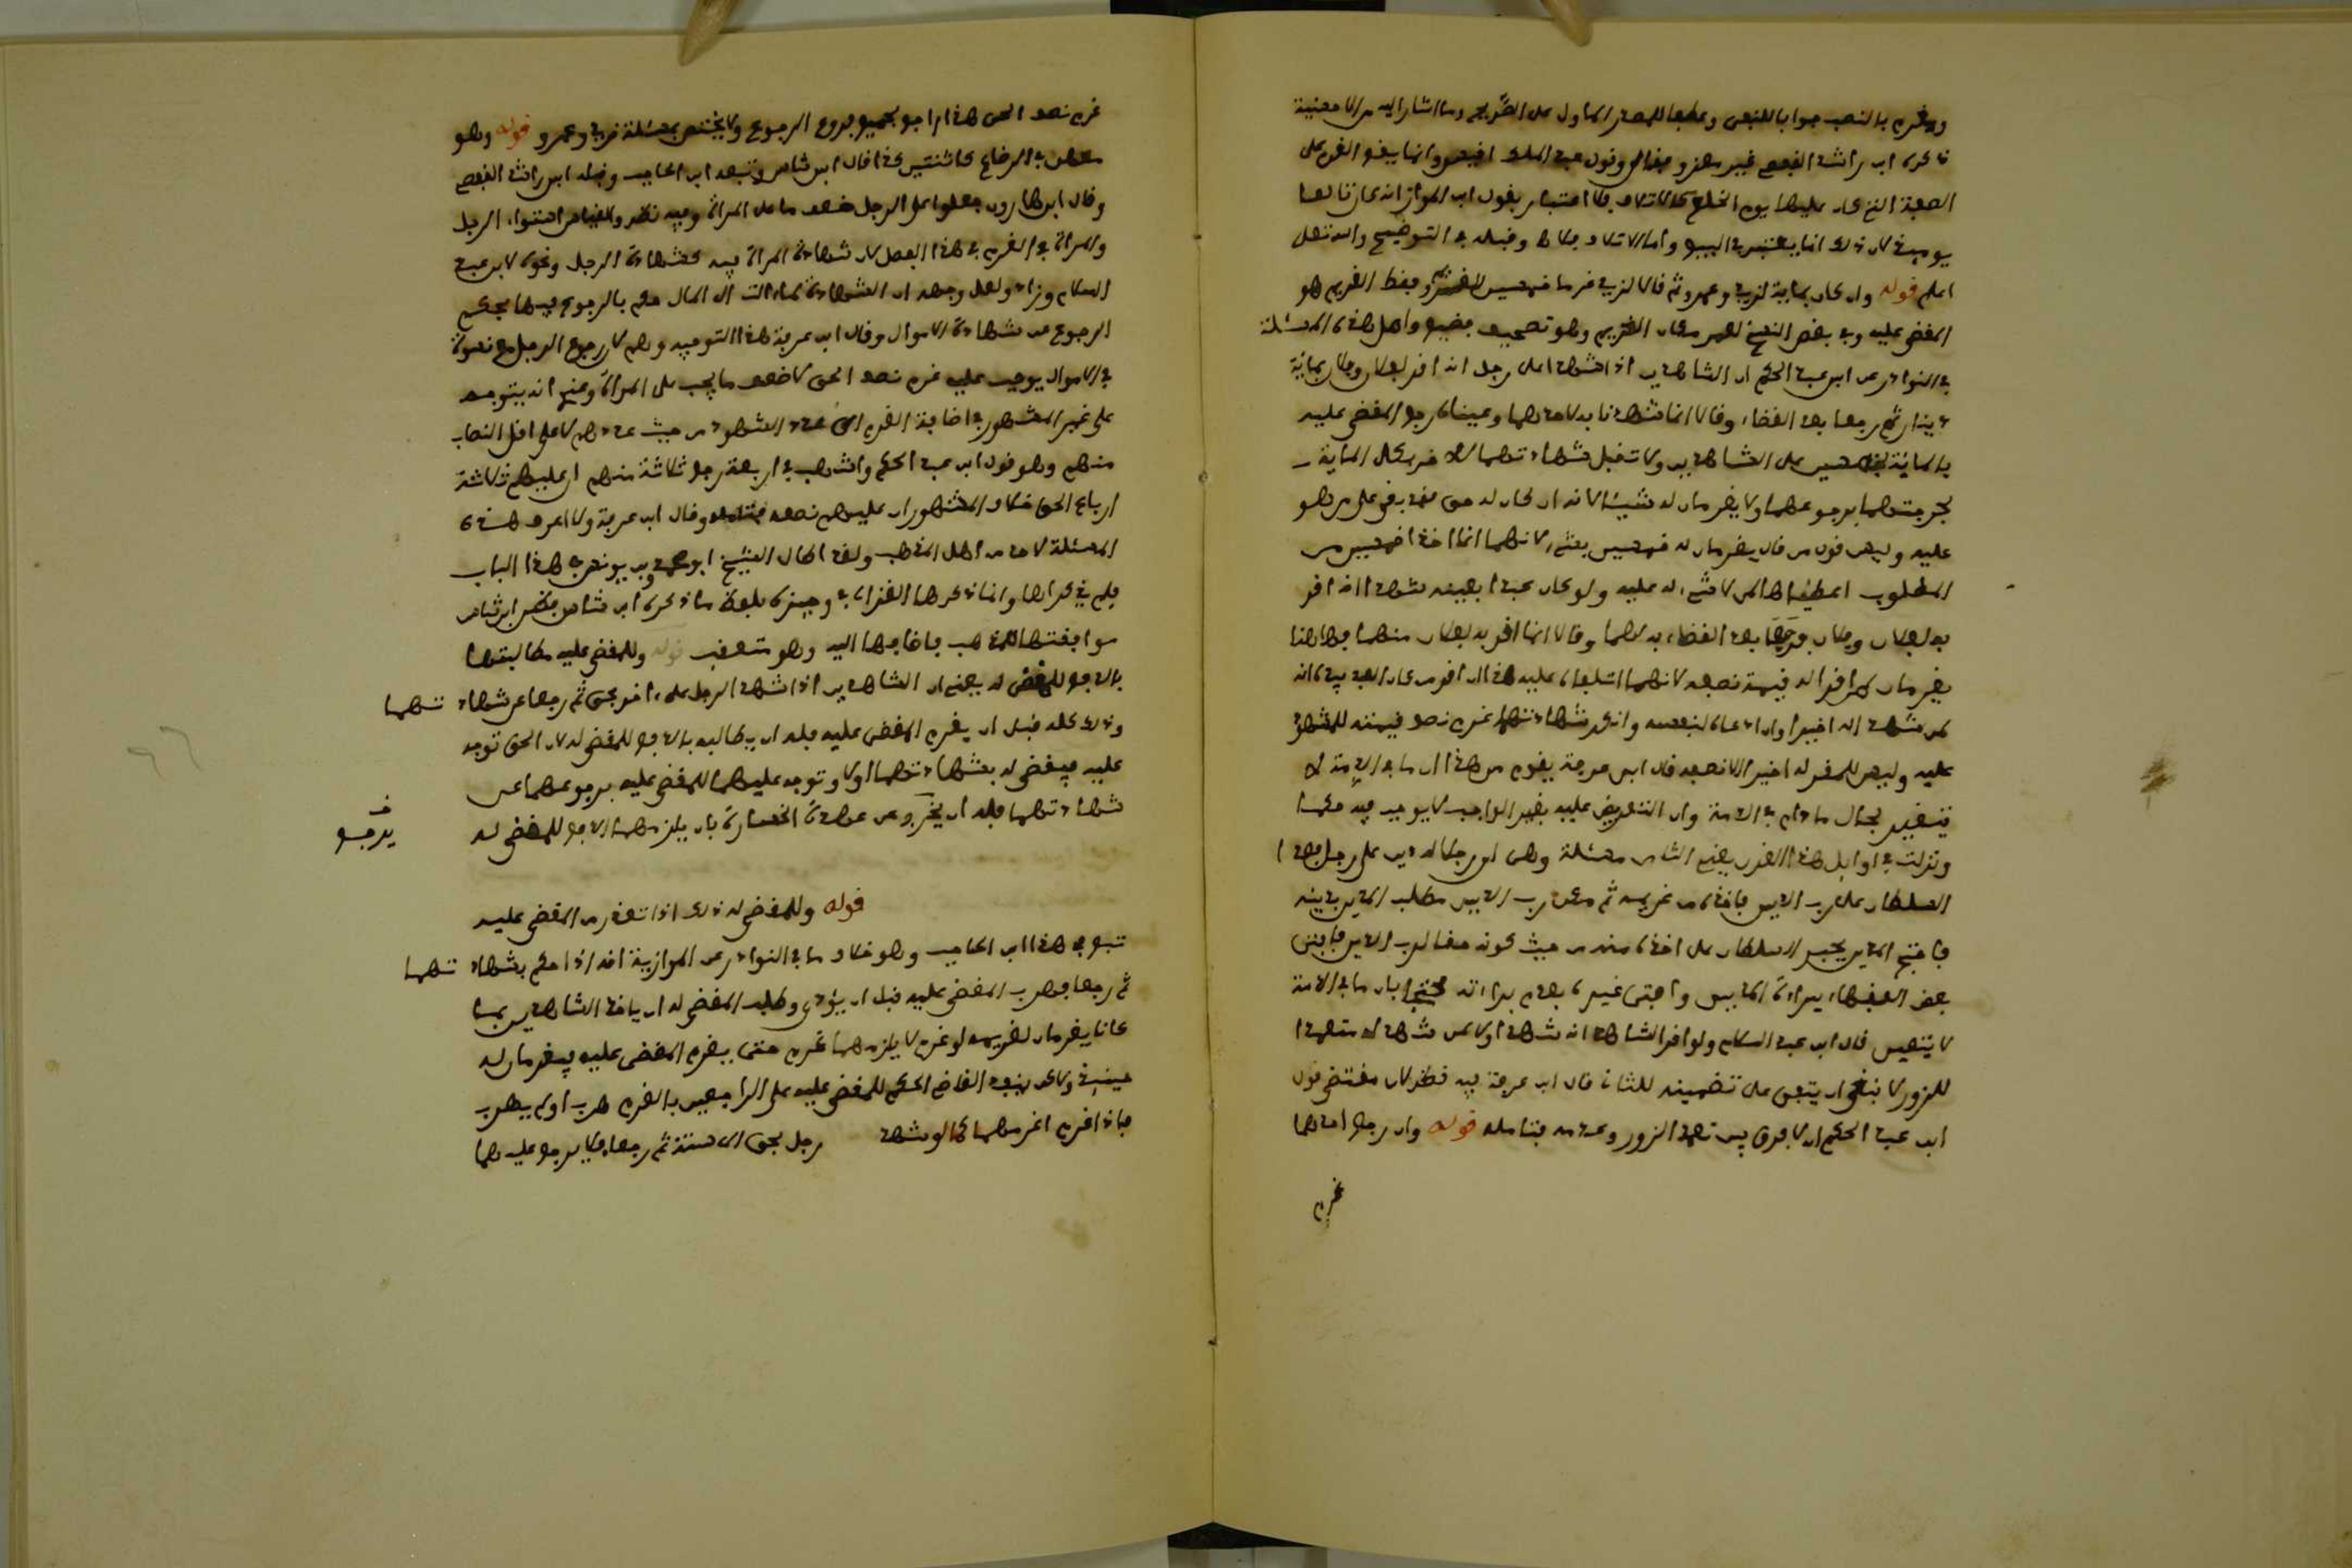 ويغرم بالنصب جوابا للنفي وعطفا للمصدر الماول على الصريح وما اشار اليه من الامنية
ذكره ابن راشد القفصي غير معزو فقال وقول عبد الملك اقيس وانما يقع الغرم على
الصفة التي كان عليها يوم الخلع لا الاتلاف فلا اعتبار بقول ابن المواز انه كان تالفا
يوميذ لان ذلك انما يعتبر في البيع واما الاتلاف فلا وقبله في التوضيح والله تعالى
اعلم قوله وان كان بماية لزيد وعمرو ثم قالا لزيد غرما خمسين للغريم فقط الغريم هو
المقضى عليه وفي بعض النسخ لعمرو مكان الغريم وهو تصحيف فضيع واصل هذه المسئلة
في النوادر عن ابن عبد الحكم ان الشاهدين اذا شهدا على رجل انه اقر لفلان وفلان بماية
دينار ثم رجعا بعد القضاء وقالا انما شهدنا بها لاحدهما وعيناه رجع المقضى عليه
بالماية بخمسين على الشاهدين ولا تقبل شهادتهما للاخر بكل الماية
لجرحتهما برجوعهما ولا يغرمان له شيئا لانه ان كان له حق فقد بقي على من هو
عليه وليس قول من قال يغرمان له خمسين بشيء لانهما انما اخذا خمسين من
المطلوب اعطياها لمن لا شيء له عليه ولو كان عبدا بعينه شهدا انه اقر
به لفلان وفلان فرجعا بعد القضاء به لهما وقالا انما اقر به لفلان منهما فهاهنا
يغرمان لمن اقرا له قيمة نصفه لانهما اتلفاه عليه هذا ان اقر من كان العبد بيده انه
لمن شهدا له اخيرا وان ادعاه لنفسه وانكر شهادتهما غرم نصف قيمته للمشهود
عليه وليس للمقر له اخيرا الا نصفه قال ابن عرفة يقوم من هذا ان ما في الذمة لا
يتعين بحال ما دام في الذمة وان التعريض عليه بغير الواجب لا يوجب فيه حكما
ونزلت في اوايل هذا القرن يعني الثامن مسئلة وهي ان رجلا له دين على رجل فعدا
السلطان على رب الدين فاخذه من غريمه ثم تمكن رب الدين فطلب المدين بدينه
فاحتج المدين بجبر السلطان على اخذه منه من حيث كونه حقا لرب الدين فافتى
بعض الفقهاء ببراءة المدين وافتى غيره بعدم براءته محتجا بان ما في الذمة
لا يتعين قال ابن عبد السلام ولو اقر الشاهدان انه شهد اولا لمن شهد له متعمدا
للزور لا نبغى ان يتفق على تضمينه للثاني قال ابن عرفة فيه نظر لان مقتضى قول
ابن عبد الحكم ان لا فرق بين تعمد الزور وعدمه فتامله قوله وان رجع احدهما
غرم
غرم نصف الحق هذا راجع بجميع فروع الرجوع ولا يختص بمسئلة زيد وعمرو قوله وهو
معه في الرضاع كاثنتين كذا قال ابن شاس وتبعه ابن الحاجب وقبله ابن راشد القفصي
وقال ابن هارون جعلوا على الرجل ضعف ما على المراة وفيه نظر والقياس استواء الرجل
والمراة في الغرم في هذا الفصل لان شهادة المراة فيه كشهادة الرجل ونحوه لابن عبد
السلام وزاد ولعل وجهه ان الشهادة لما الت الى المال حكم بالرجوع فيها بحكم
الرجوع عن شهادة الاموال وقال ابن عرفة هذا التوجيه وهم لان رجوع الرجل مع نسوة
في الاموال يوجب عليه غرم نصف الحق لا ضعف ما يجب على المراة وعنى انه يتوجه
على غير المشهور في اضافة الغرم الى عدد الشهود من حيث عددهم لا على اقل النصاب
منهم وهو قول ابن عبد الحكم واشهب في اربعة رجع ثلاثة منهم ان عليهم ثلاثة
ارباع الحق خلاف المشهور ان عليهم نصفه فتامله وقال ابن عرفة ولا اعرف هذه
المسئلة لاحد من اهل المذهب ولقد اطال الشيخ ابو محمد وابن يونس في هذا الباب
فلم يذكراها وانما ذكرها الغزالي في وجيزه بلفظ ما ذكره ابن شاس فظن ابن شاس
موافقتها للمذهب فاضافها اليه وهو متعقب قوله وللمقضى عليه مطالبتهما
بالدفع للمقضى له يعني ان الشاهدين اذا شهدا لرجل على اخر بحق ثم رجعا عن شهادتهما
وذلك كله قبل ان يغرم المقضى عليه فله ان يطالبه بالدفع للمقضى له لان الحق توجه
عليه فيقضى له بشهادتهما اولا وتوجه عليهما للمقضى عليه برجوعهما عن
شهادتهما فله ان يخرج عن عهدة الخسارة بان يلزمهما الدفع للمقضى له
يدفع
قوله وللمقضى له ذلك اذا تعذر من المقضى عليه
تبع في هذا ابن الحاجب وهو خلاف ما في النوادر عن الموازية انه اذا حكم بشهادتهما
ثم رجعا فهرب المقضى عليه قبل ان يؤدي وطلب المقضى له ان ياخذ الشاهدين بما
كانا يغرمان لغريمه لو غرم لا يلزمهما غرم حتى يغرم المقضى عليه فيغرمان له
حينيذ ولكن ينفذ القاضي الحكم للمقضى عليه على الراجعين بالغرم هرب او لم يهرب
فاذا غرم اغرمهما كما لو شهدا لرجل بحق الى سنة ثم رجعا فلا يرجع عليهما